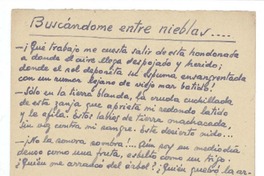 Buscándome entre nieblas....
—¡Qué trabajo me cuesta salir de esta hondonada
a donde el aire llega despojado y herido;
donde el sol deposita su espuma ensangrentada
con un rumor lejano de viejo mar batido!
—Sólo en la tierra blanda, la ruda cuchillada
de esta zanja que aprieta mi redondo latido
y lo afila. Estos labios de tierra machacada,
sin voz contra mi sangre. Este desierto nido...
—¡No la nombra sombra!... Aún soy un mediodía
denso como una fruta, esbelto como un trigo.
¿Quién me arrancó del árbol? ¿Quién quebró la ar-